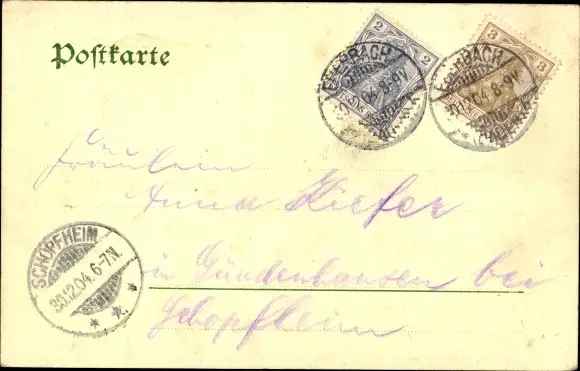 Postkarte
2
3
04. 8-9V
04. 8-9V
Fräulein
Anna Kiefer
in Gündenhausen bei
Schopfheim
SCHOPFHEIM
30.12.04. 6-7N.